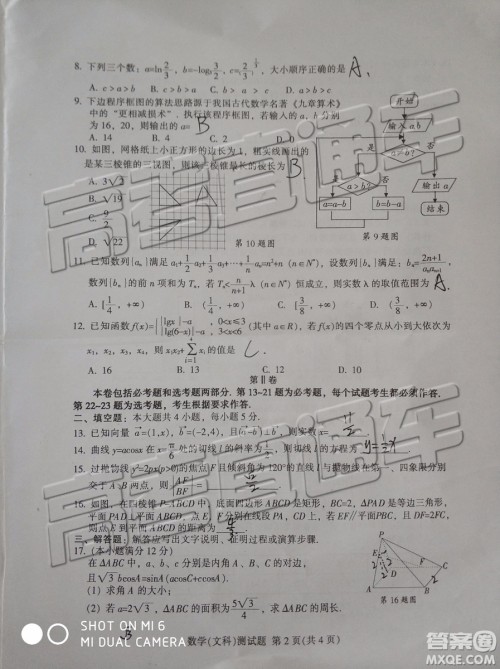 8. 下列三个数：a=ln 2/3，b=-log₃ 3/2，大小顺序正确的是 A、
A. c>a>b B. c>b>a C. a>b>c
9. 下边程序框图的算法思路源于我国古代数学名著《九章算术》
中的“更相减损术”. 执行该程序框图，若输入的a，b分别
为16，20，则输出的a= B
A. 14 B. 4 C. 2 D. 0
开始
输入a,b
是 否
a>b?
a=a-b b=b-a
输出a
结束
第9题图
10. 如图，网格纸上小正方形的边长为1，粗实线画出的
是某三棱锥的三视图，则该三棱锥最长的棱长为 B
A. 3√
B. √19
C. 9/2
D. √22
第10题图
11. 已知数列{aₙ}满足a₁+1/2a₂+1/3a₃+…+1/n aₙ=n²+n（n∈N*），设数列{bₙ}满足：bₙ=2n+1/aₙaₙ₊₁，
数列{bₙ}的前n项和为Tₙ，若Tₙ<n/n+1 λ（n∈N*）恒成立，则实数λ的取值范围为 A、
A. [1/4，+∞) B. (1/4，+∞) C. [3/8，+∞) D. (3/8，+∞)
12. 已知函数f(x)={|lgx|-a，0<x≤3 |lg(6-x)|-a，3<x<6（其中a∈R），若f(x)的四个零点从小大依次为
x₁，x₂，x₃，x₄，则x₁x₂+Σxᵢ的值是 C、
A. 16 B. 13 C. 12 D. 10
第Ⅱ卷
本卷包括必考题和选考题两部分. 第13-21题为必考题，每个试题考生都必须作答.
第22-23题为选考题，考生根据要求作答.
二、填空题：本大题共4小题，每小题5分.
13. 已知向量a=(1,x)，b=(-2,4)，且(a-b)⊥b，则实数x=
14. 曲线y=acosx在x=π/6处的切线l的斜率为1/2，则切线l的方程为
15. 过抛物线y²=2px(p>0)的焦点F且倾斜角为120°的直线l与抛物线在第一、四象限分别
交于A、B两点，则|AF|/|BF|=
16. 如图，在四棱锥P-ABCD中，底面四边形ABCD是矩形，BC=2，△PAD是等边三角形，
平面PAD⊥平面ABCD，点E、F分别在线段PA、CD上，若EF∥平面PBC，且DF=2FC，
则点E到平面ABCD的距离为
三、解答题：解答应写出文字说明、证明过程或演算步骤.
17.（本小题满分12分）
在△ABC中，a，b，c分别是内角A，B，C的对边，
且√3 bcosA=sinA(acosC+ccosA)
(1) 求角A的大小；
(2) 若a=2√3，△ABC的面积为5√3/4，求△ABC的周长.
第16题图
数学(文科)测试题 第2页(共4页)
SHOT ON MI 6
MI DUAL CAMERA
高考直通车
高考直通车
答案圈
MXQE.COM